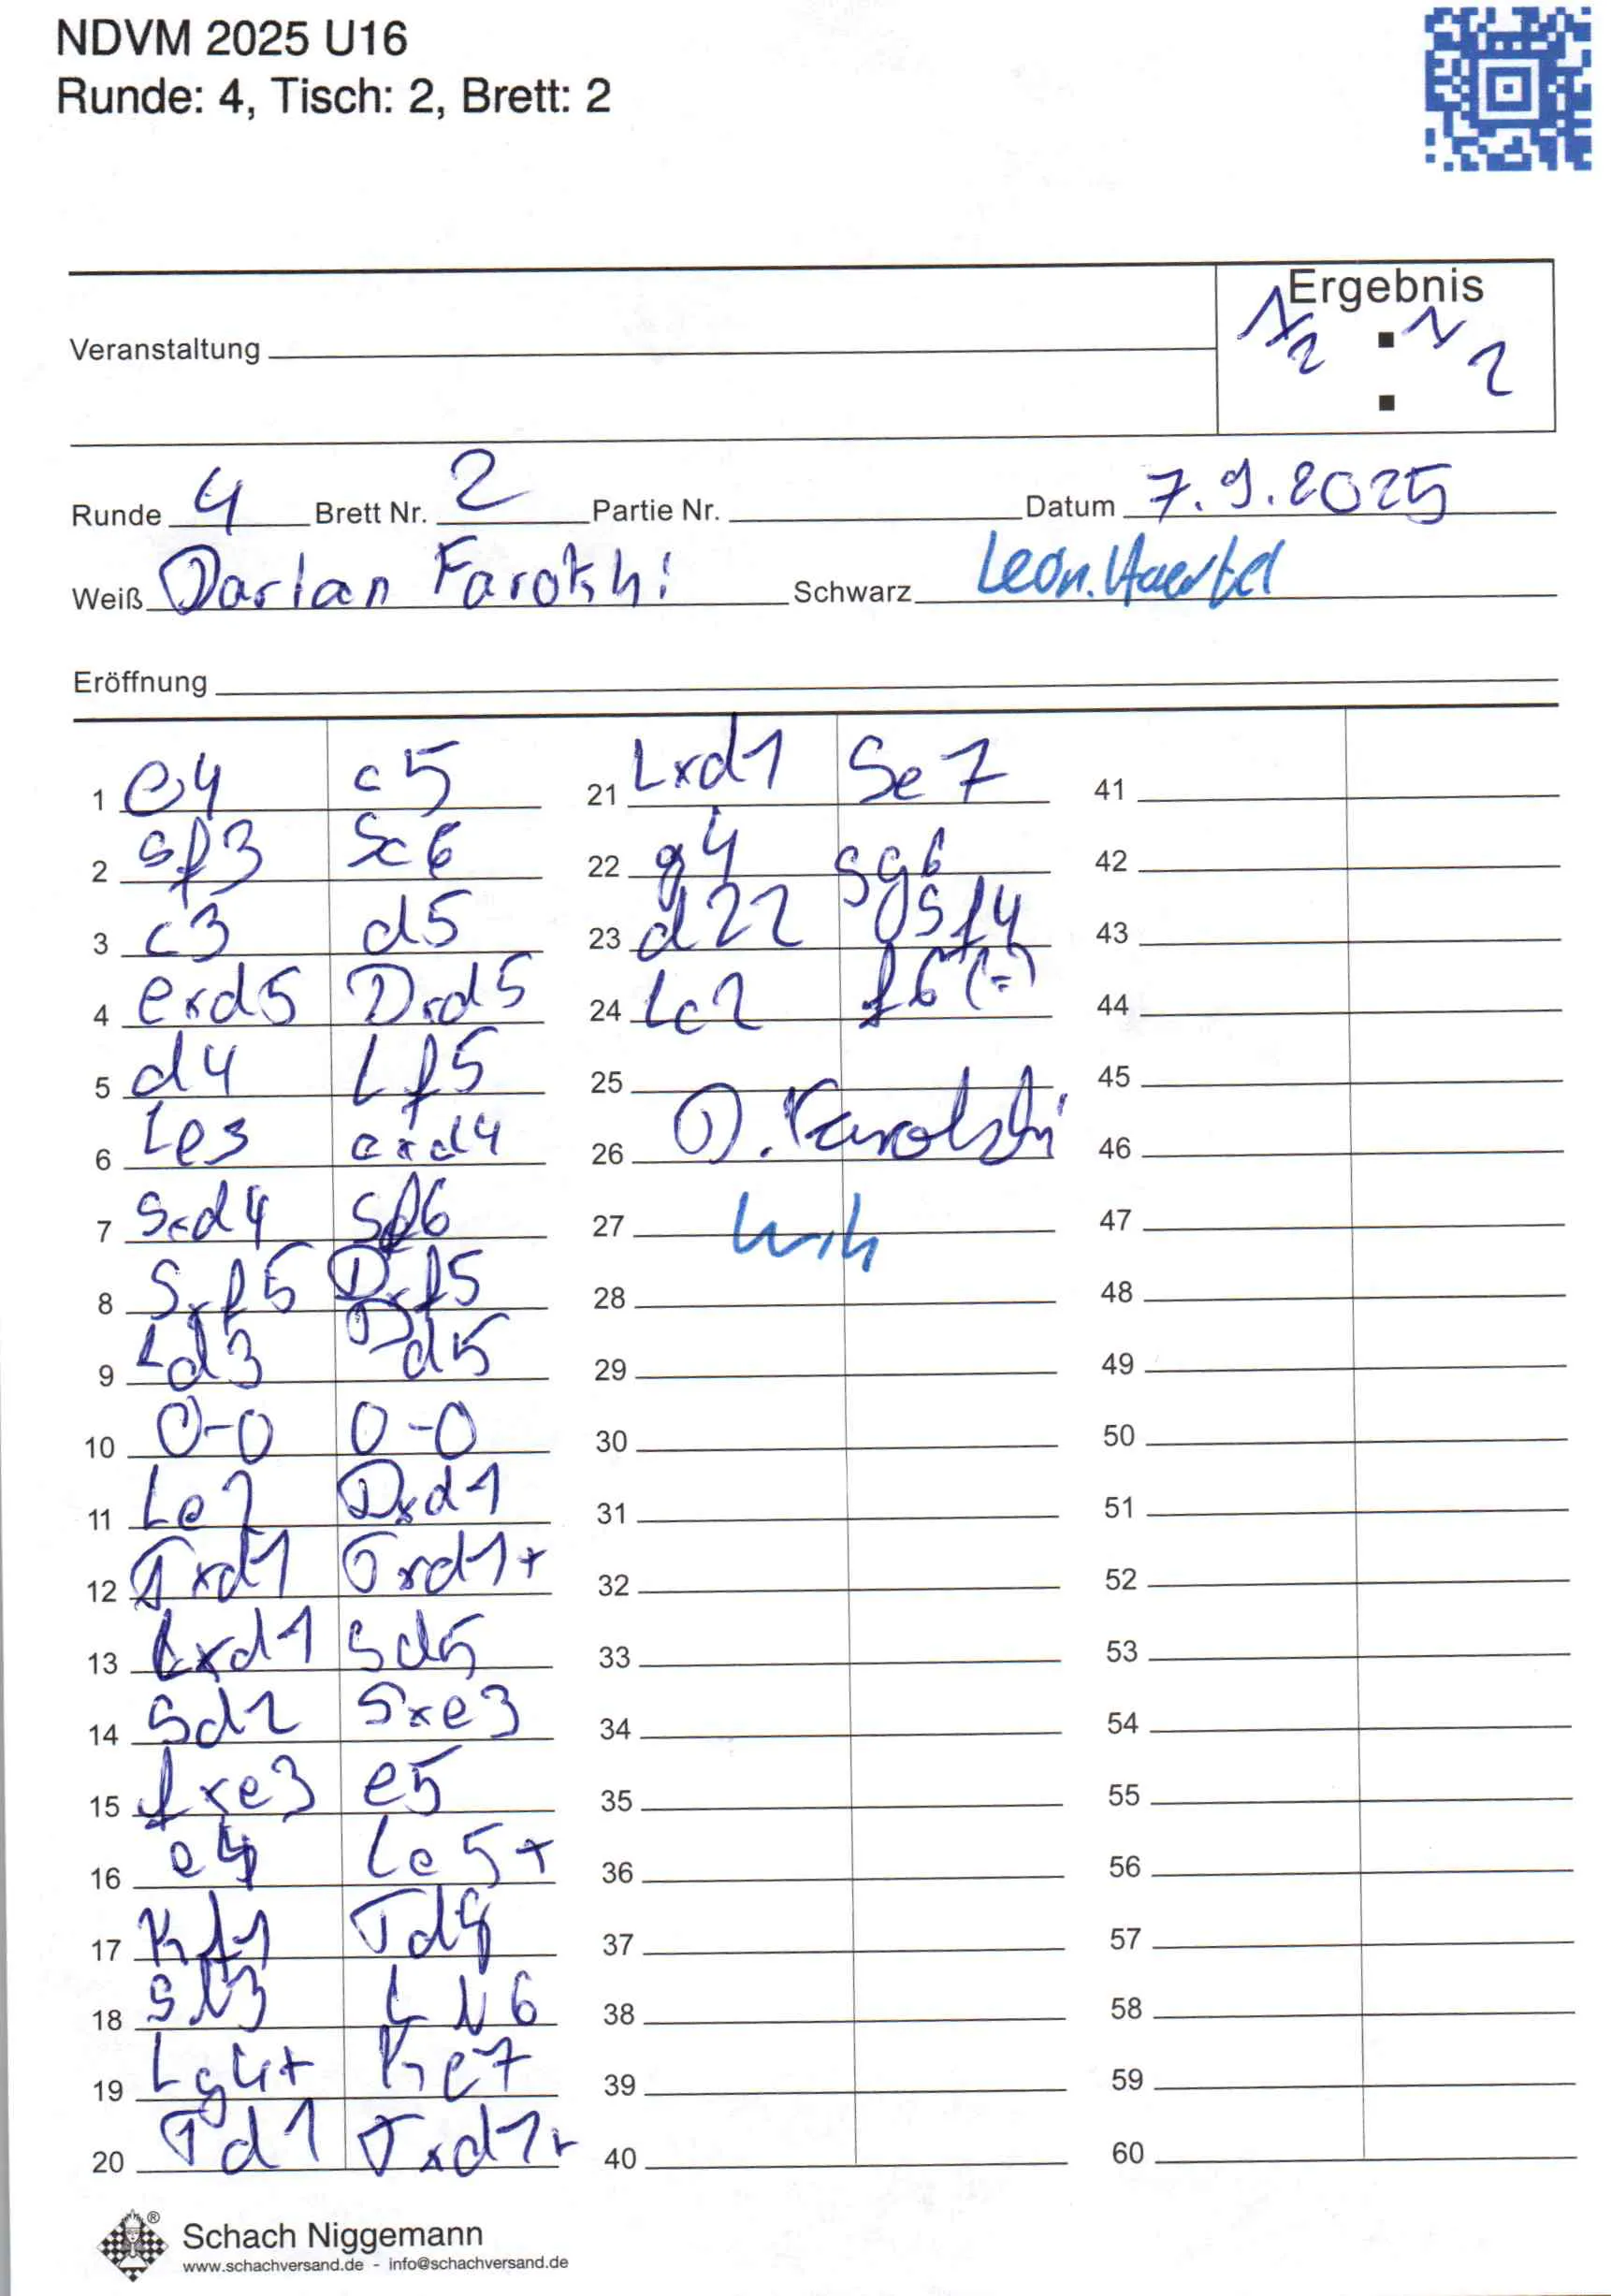 NDVM 2025 U16
Runde: 4, Tisch: 2, Brett: 2
Ergebnis
1/2 : 1/2
Veranstaltung
Runde 4 Brett Nr. 2 Partie Nr. Datum 7.9.2025
Weiß Darlan Farokhi Schwarz Leon. Haertel
Eröffnung
1 e4 c5
2 Sf3 Sc6
3 c3 d5
4 exd5 Dxd5
5 d4 Lf5
6 Le3 cxd4
7 Sxd4 Sf6
8 Sxf5 Dxf5
9 Ld3 Dd5
10 0-0 0-0
11 Le2 Dxd1
12 Txd1 Txd1+
13 Lxd1 Sd5
14 Sd2 Sxe3
15 fxe3 e5
16 e4 Lc5+
17 Kf1 Td8
18 Sb3 Lb6
19 Lg4+ Kc7
20 Td1 Txd1+
21 Lxd1 Se7
22 g4 Sg6
23 a22 Sf4
24 Lc2 f6 (=)
25
26 D. Farokhi
27
28
29
30
31
32
33
34
35
36
37
38
39
40
41
42
43
44
45
46
47
48
49
50
51
52
53
54
55
56
57
58
59
60
Schach Niggemann
www.schachversand.de - info@schachversand.de